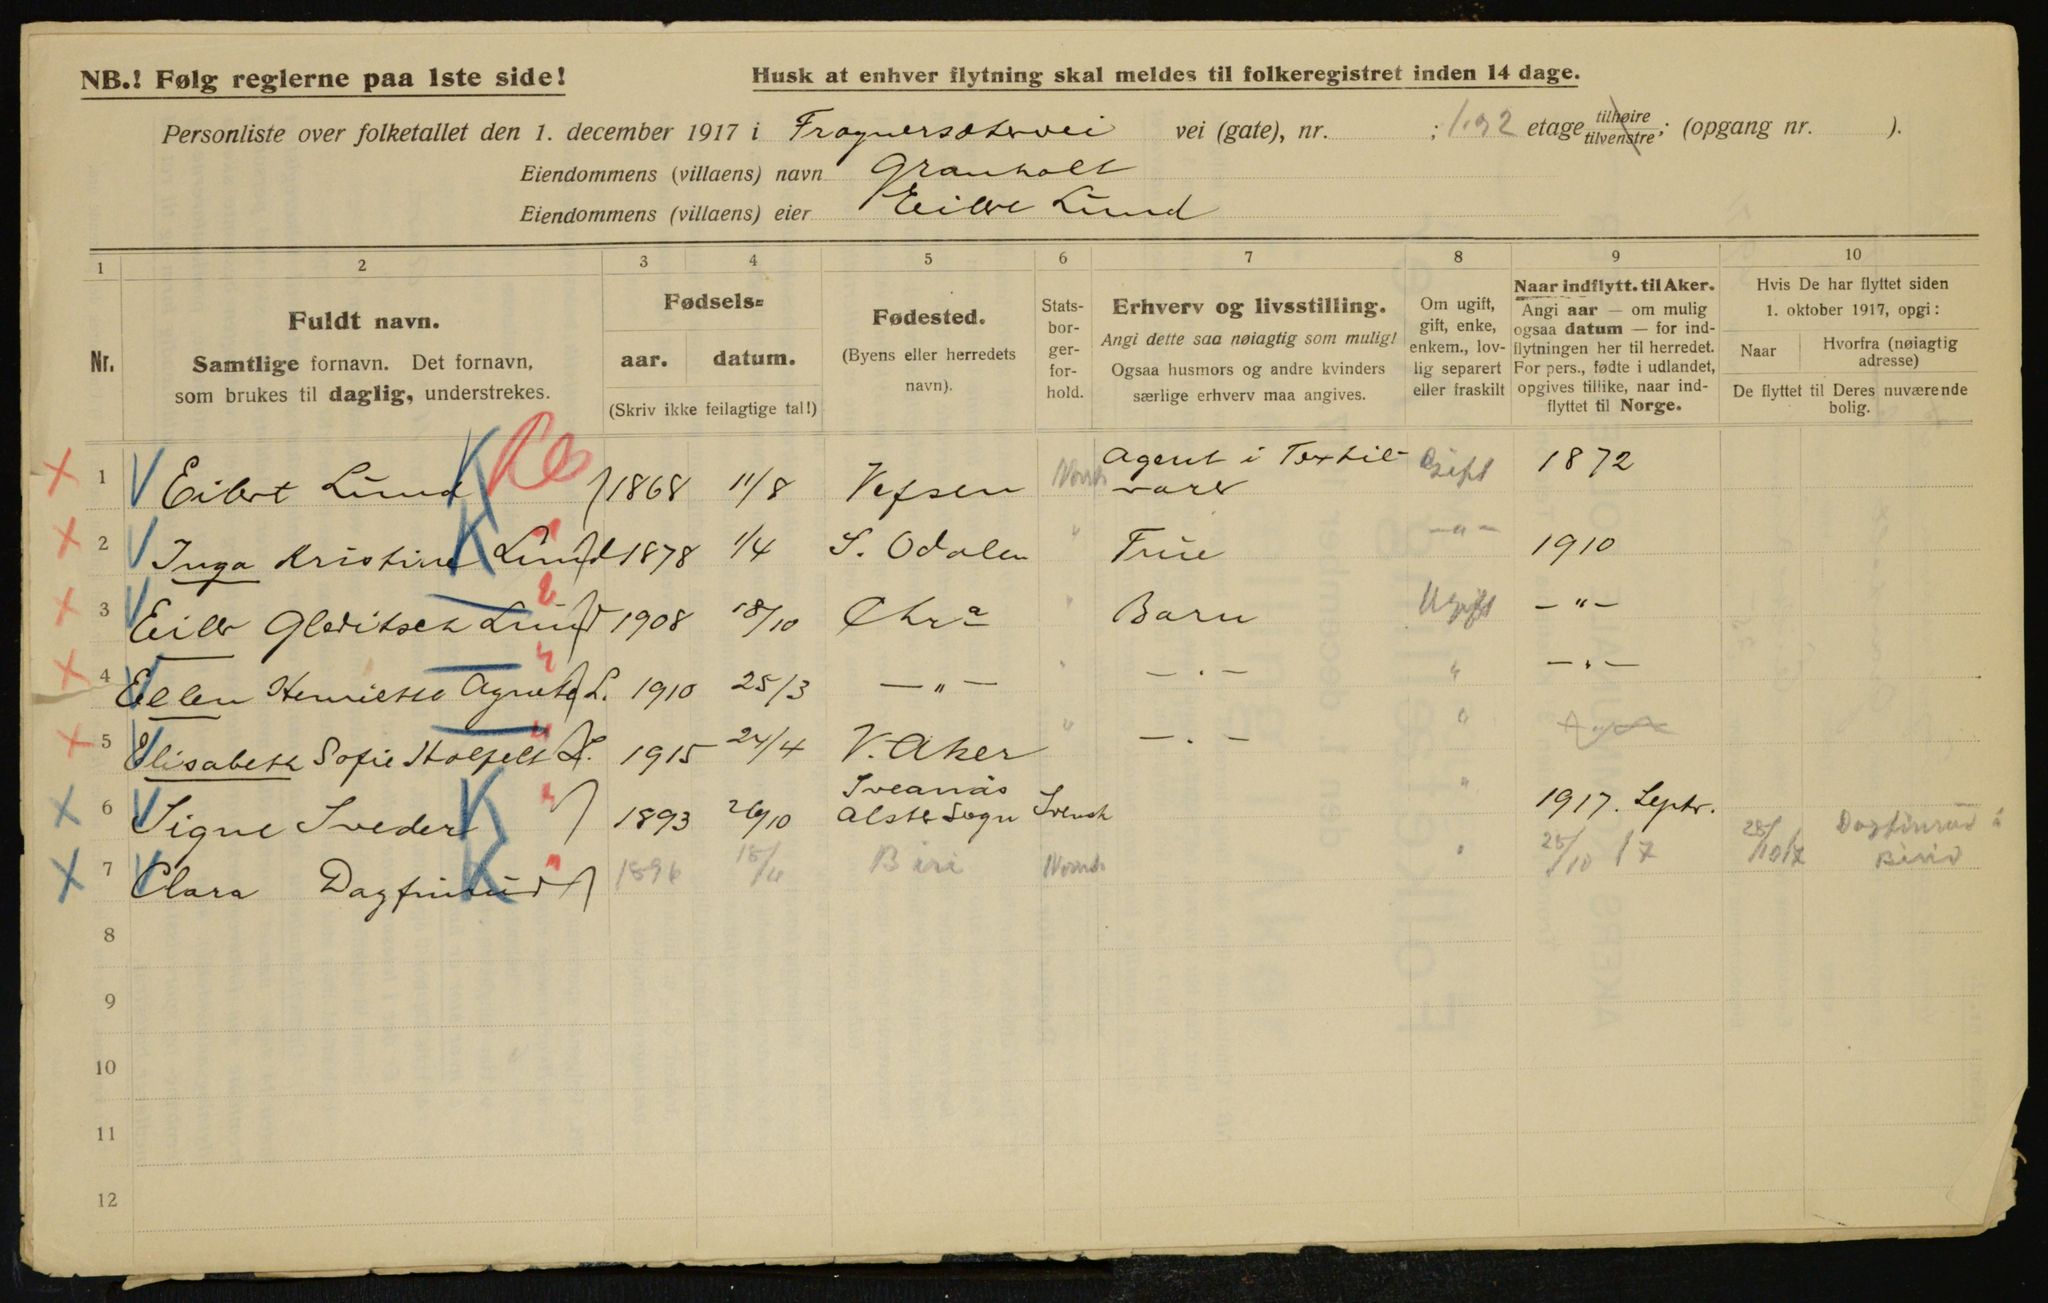 NB.! Følg reglerne paa 1ste side!
Husk at enhver flytning skal meldes til folkeregistret inden 14 dage.
Personliste over folketallet den 1. december 1917 i Frognersætervei vei (gate), nr. ; 1 og 2 etage tilhøire tilvenstre; (opgang nr. ).
Eiendommens (villaens) navn Granholt
Eiendommens (villaens) eier Eilert Lund
1 2 3 4 5 6 7 8 9 10
Nr.
Fuldt navn.
Samtlige fornavn. Det fornavn,
som brukes til daglig, understrekes.
Fødsels=
aar. datum.
(Skriv ikke feilagtige tal!)
Fødested.
(Byens eller herredets
navn).
Stats-
bor-
ger-
for-
hold.
Erhverv og livsstilling.
Angi dette saa nøiagtig som mulig!
Ogsaa husmors og andre kvinders
særlige erhverv maa angives.
Om ugift,
gift, enke,
enkem., lov-
lig separert
eller fraskilt
Naar indflytt. til Aker.
Angi aar — om mulig
ogsaa datum — for ind-
flytningen her til herredet.
For pers., fødte i udlandet,
opgives tillike, naar ind-
flyttet til Norge.
Hvis De har flyttet siden
1. oktober 1917, opgi:
Naar
Hvorfra (nøiagtig
adresse)
De flyttet til Deres nuværende
bolig.
1 Eilert Lund K 1868 11/8 Vefsen Norsk Agent i Textil-varer Gift 1872
2 Inga Kristine Lund K 1878 1/4 S. Odalen " Frue —"— 1910
3 Eiler Gleditsch Lund 1908 18/10 Chra " Barn Ugift —"—
4 Ellen Henriette Agnete L. 1910 25/3 —"— " —"— " —"—
5 Elisabeth Sofie Holfelt L. 1915 24/4 V. Aker " —"— "
6 Signe Sveder K 1893 26/10 Sveanäs Alster Sogn Svensk " 1917. Septr.
7 Clara Dagfinrud K 1896 Biri Norsk " 25/10 17 Dagfinrud i Biri
8
9
10
11
12